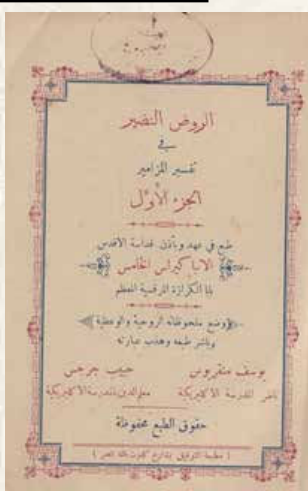 الروض النضير
في
تفسير المزامير
الجزء الأول
طبع في عهد وبأذن قداسة الاقدس
الانبا كيرلس الخامس
بابا الكرازة المرقسية المعظم
وضع ملحوظاته الروحية والوعظية
وباشر طبعه وهذب عبارته
يوسف منقريوس
حبيب جرجس
ناظر المدرسة الاكليريكية
معلم الدين بالمدرسة الاكليريكية
حقوق الطبع محفوظة
( مطبعة التوفيق بشارع كلوت بك بمصر )